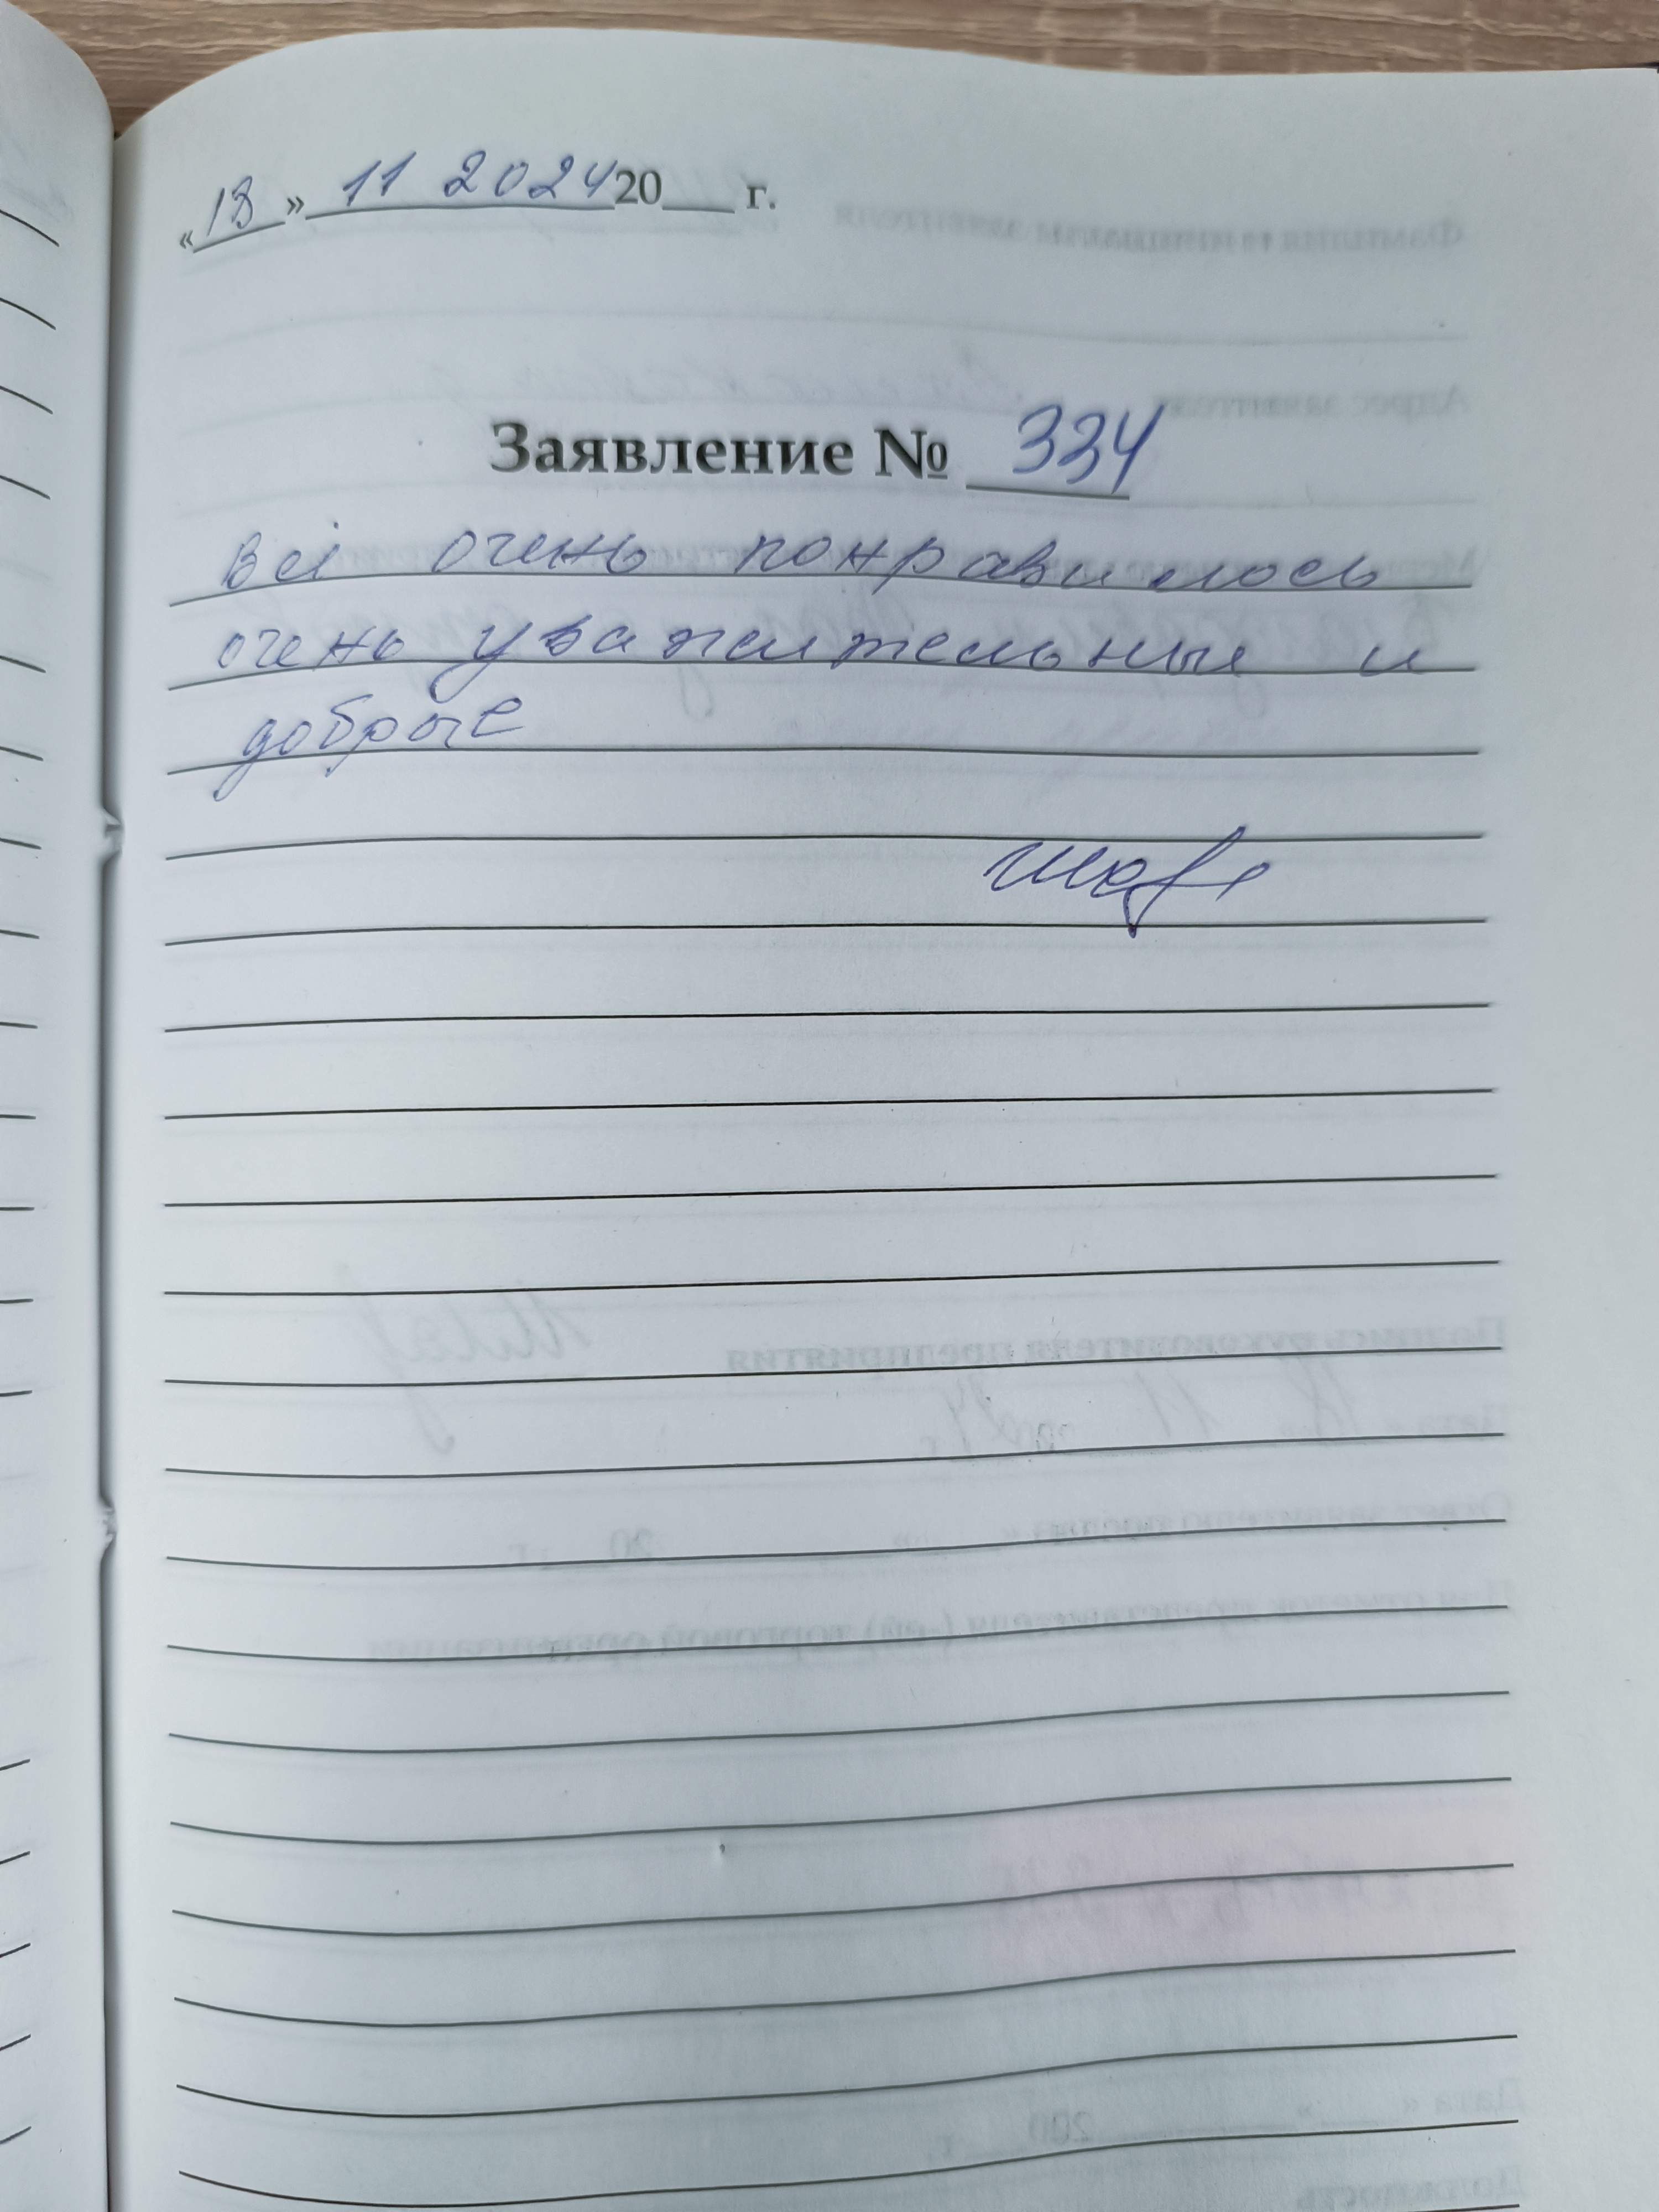 «13» 11 2024 20___ г.
Заявление № 334
Всё очень понравилось
очень уважительные и
доброе